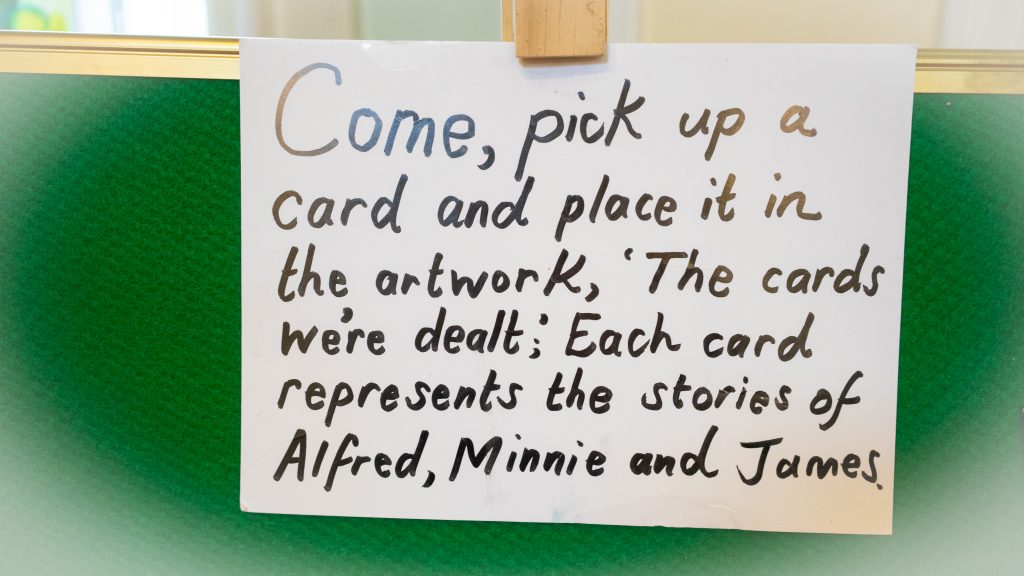 Come, pick up a
card and place it in
the artwork, 'The cards
we're dealt'. Each card
represents the stories of
Alfred, Minnie and James.